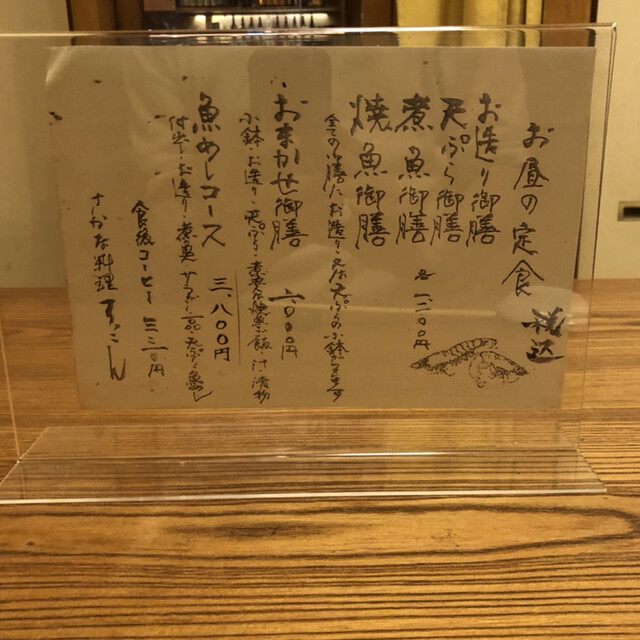 お昼の定食 税込
お造り御膳
天ぷら御膳
煮魚御膳
焼魚御膳
各 一二〇〇円
全ての御膳にお造り・又は天ぷらの小鉢が
おまかせ御膳
小鉢・お造り・天ぷら・煮魚又は焼魚・ご飯・汁・漬物
魚めしコース 三、八〇〇円
付出し・お造り・煮魚 サラダ 一品 天ぷら 魚めし
食後コーヒー 三三〇円
さかな料理